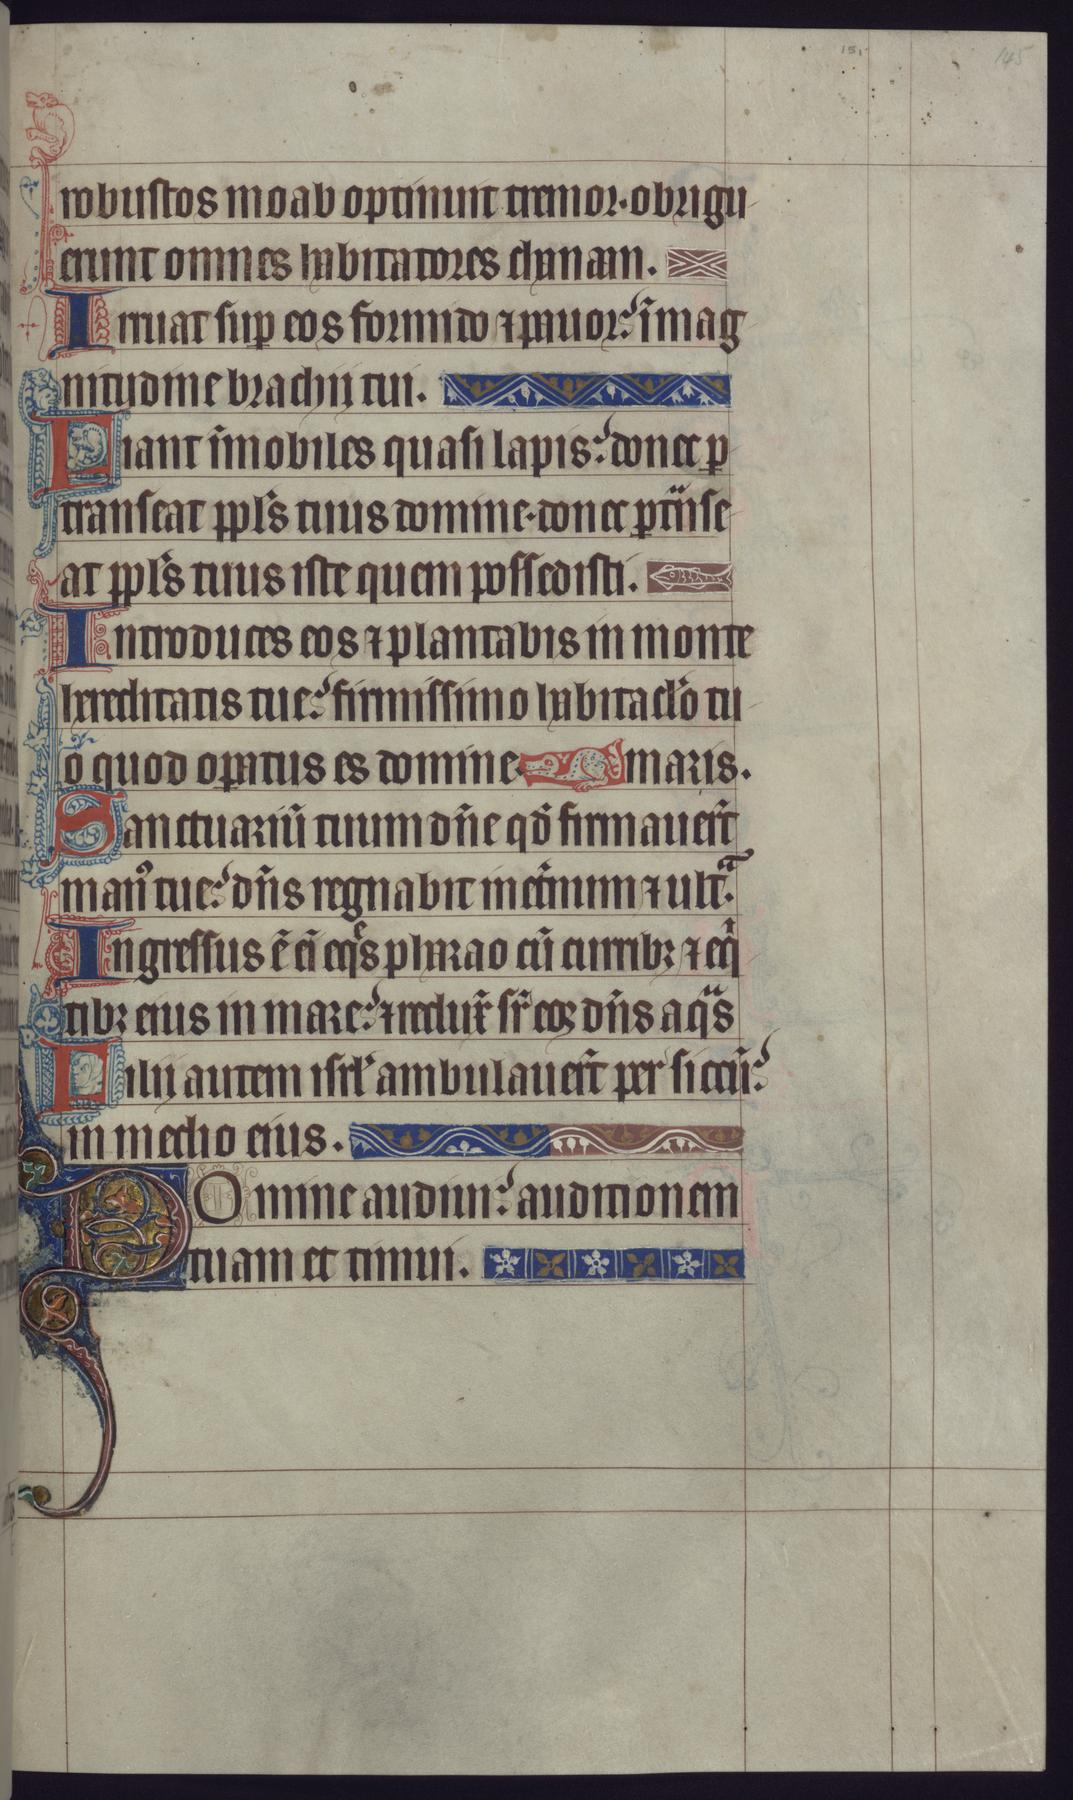 151
145
robustos moab optinuit tremor. obrigu
erunt omnes habitatores chanain.
Irruat sup̄ eos formido ⁊ pauor: ī mag
nitudine brachij tui.
Fiant īmobiles quasi lapis: donec ꝑ
transeat ppl̄s tuus domine. donec ꝑtͣnse
at ppl̄s tuus iste quem possedisti.
Introduces eos ⁊ plantabis in monte
hereditatis tue: firmissimo habitaclo̅ tu
o quod operatus es domine. maris.
Sanctuariū tuum dn̄e qd̄ firmauer̄t
manꝰ tue: dn̄s regnabit in et̄num ⁊ ultͣ.
Ingressus ē eī eqͤs pharao cū curribꝫ ⁊ eqͥ
tibꝫ eius in mare: ⁊ redux̄ sr̄ eoꝝ dn̄s aqͣs
Filij autem isrl̄ ambulauer̄t per siccū:
in medio eius.
DOmine audiui: auditionem
tuam et timui.